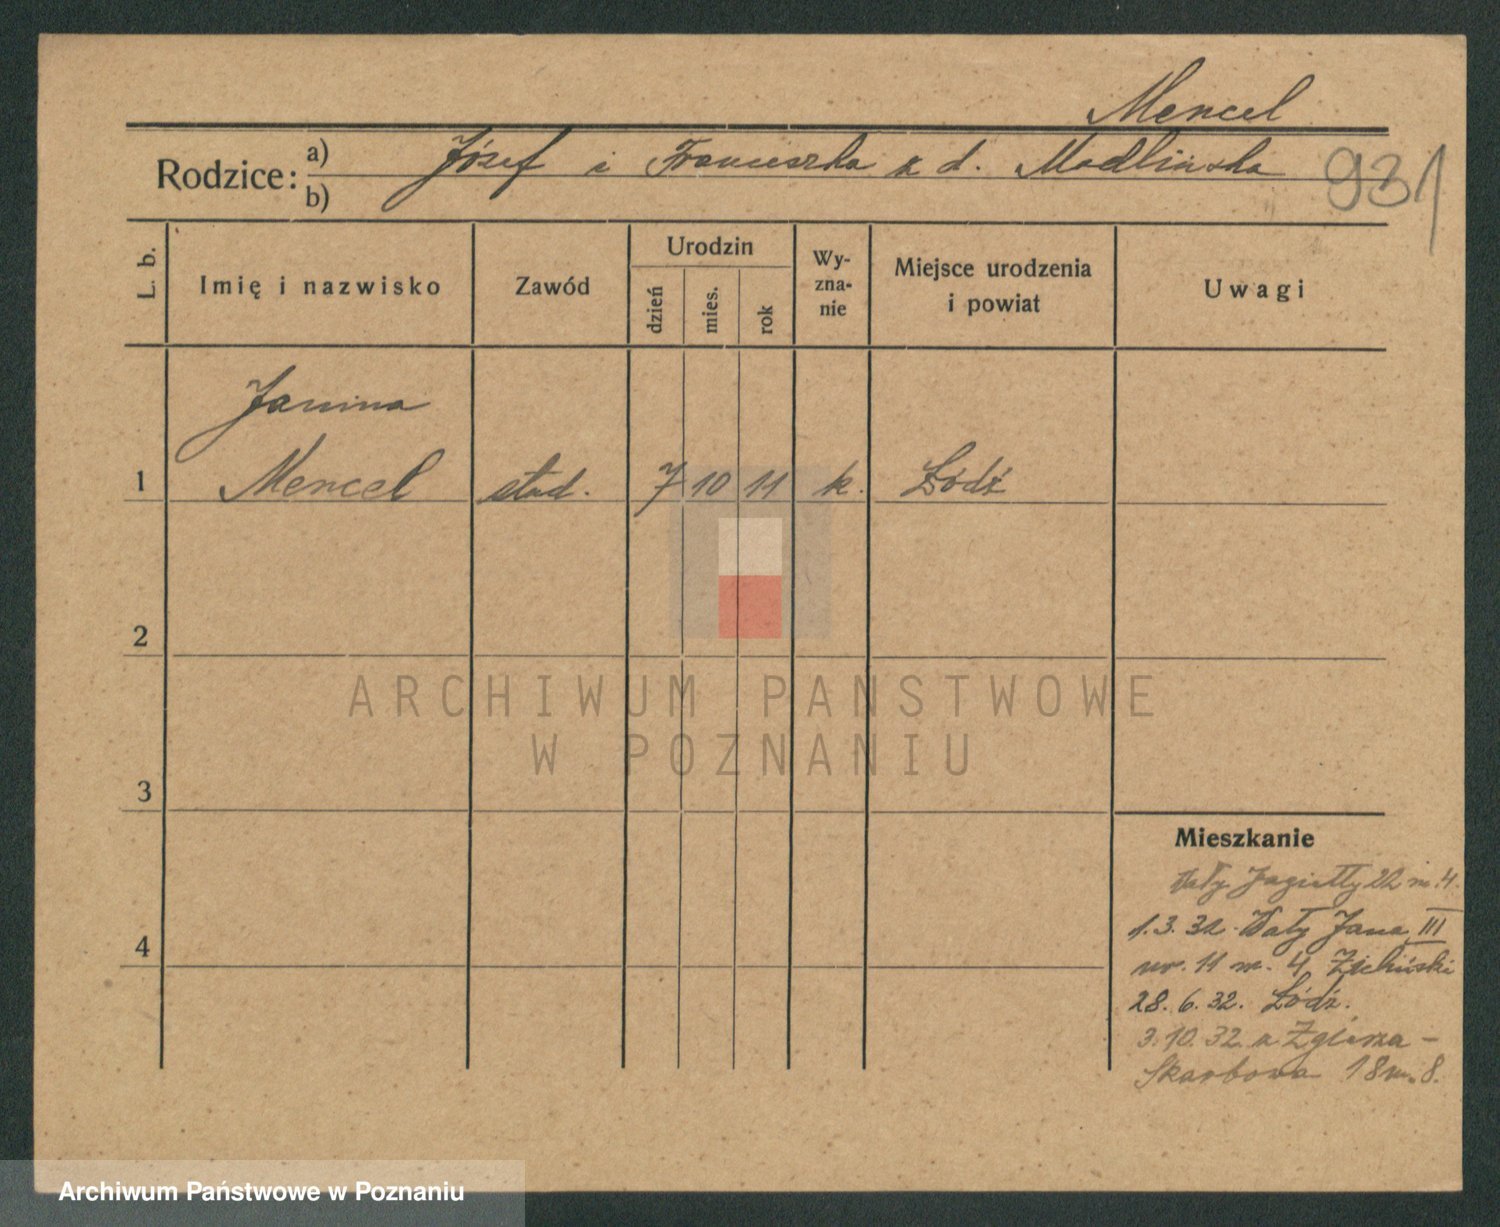 Mencel
Rodzice: a) Józef i Franciszka z d. Modlińska
b)
931
L. b. Imię i nazwisko Zawód Urodzin dzień mies. rok Wy-zna-nie Miejsce urodzenia i powiat Uwagi
Janina
1 Mencel stud. 7 10 11 k. Łódź
2
3
4
Mieszkanie
Wały Jagiełły 22 m. 4.
1.3.32. Wały Jana III
nr. 11 m. 4
28.6.32. Łódź.
3.10.32 z Zgierza –
Skarbowa 18 m. 8.
ARCHIWUM PAŃSTWOWE
W POZNANIU
Archiwum Państwowe w Poznaniu